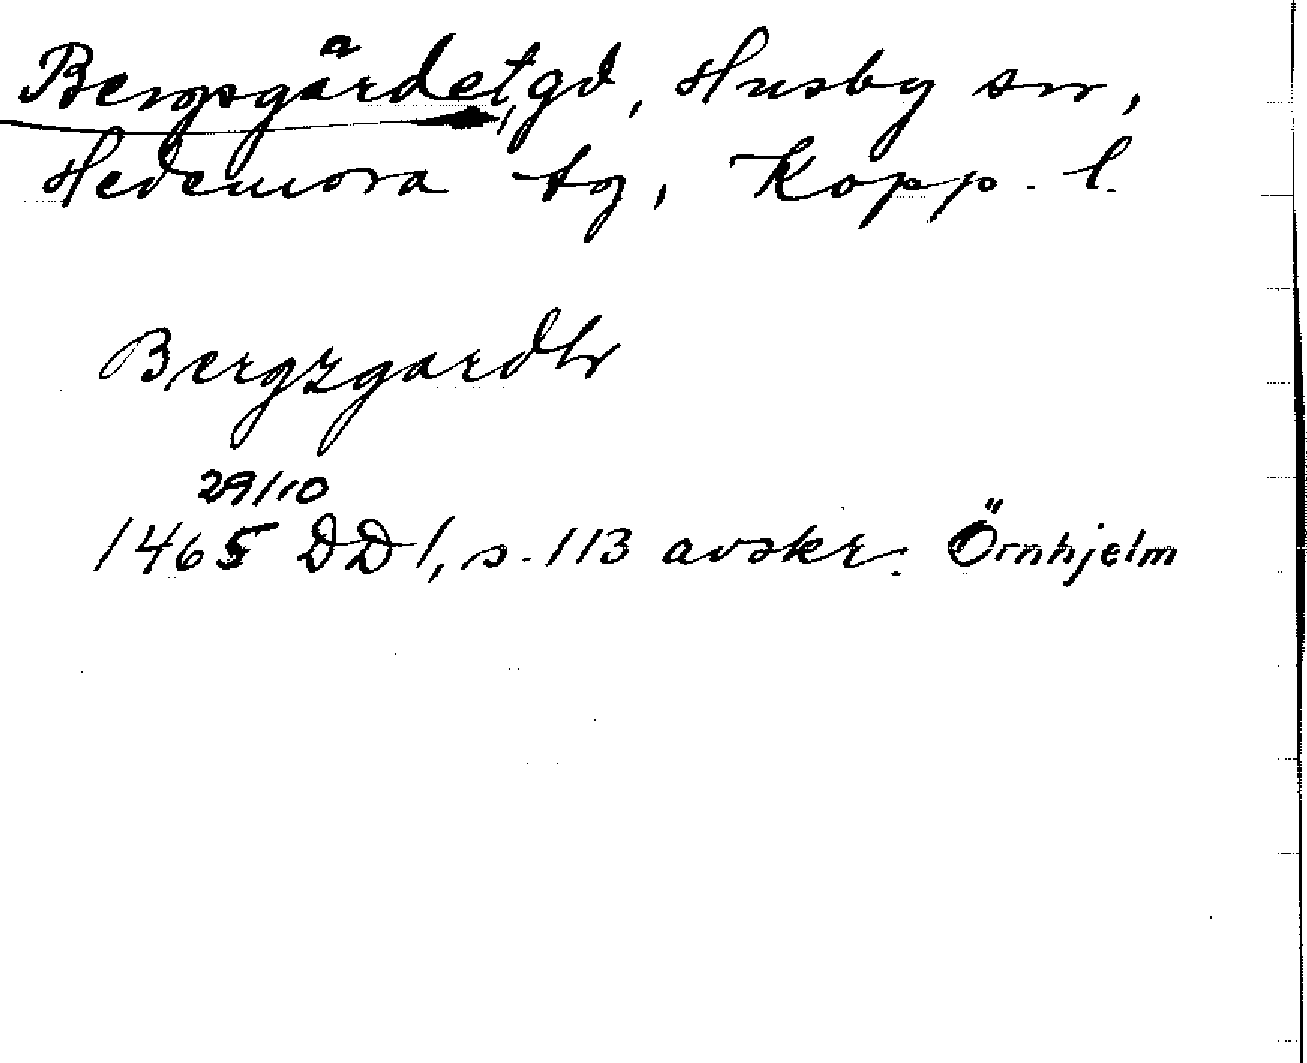 Bergsgårdet, gd, Husby sn,
Hedemora tg, Kopp. l.
Bergzgardh
29/10
1465 DD 1, s. 113 avskr. Örnhjelm